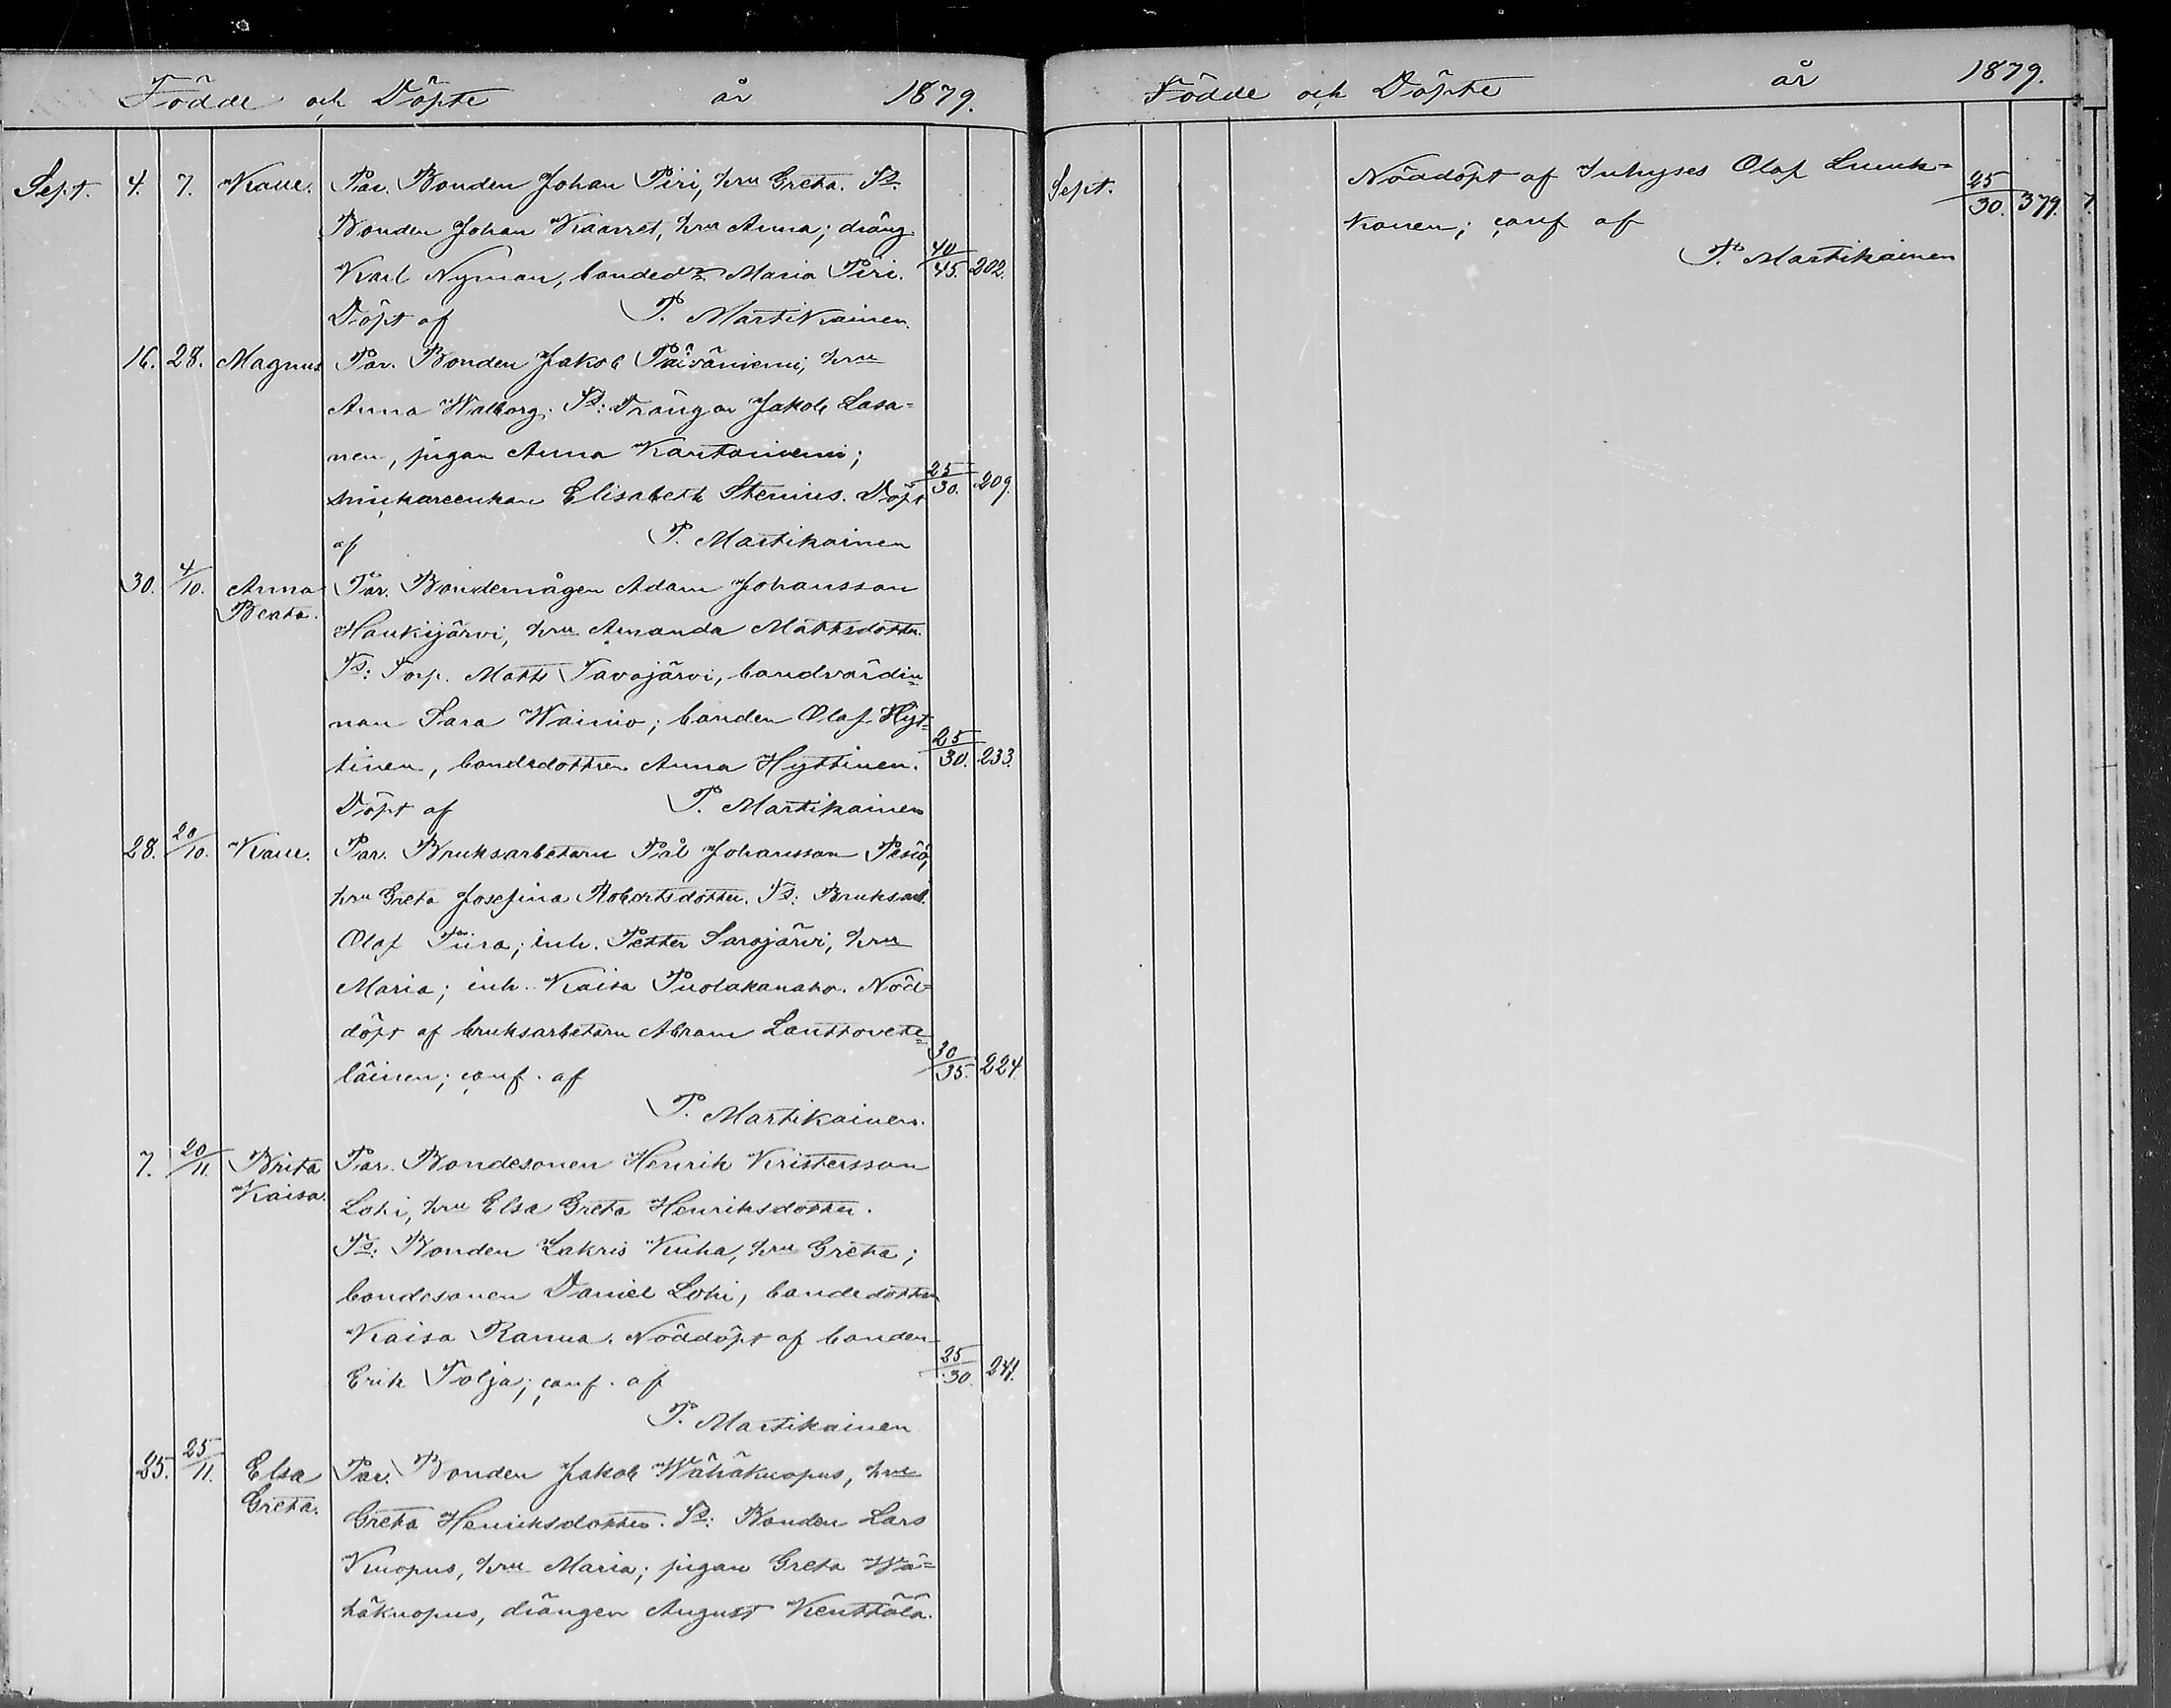 Födde och Döpte år 1879.
Sept. 4. 7. Kalle. Par. Bonden Johan Piri, hru Greta. Ts.
Bonden Johan Kaarret, hru Anna; dräng
Karl Nyman, bondedr Maria Piri. 40/45. 202.
Döpt af P. Martikainen.
16. 28. Magnus Par. Bonden Jakob Päiväniemi, hru
Anna Walborg. Ts: Drängen Jakob Lasa-
nen, pigan Anna Kantoniemi;
snickareenkan Elisabeth Stenius. Döpt 25/30. 209.
af P. Martikainen
30. 4/10. Anna Par. Bondemågen Adam Johansson
Beata. Haukijärvi, hru Amanda Mattsdotter.
Ts: Torp. Matts Tavajärvi, bondvärdin-
nan Sara Wainio; bonden Olof Hyt-
tinen, bondedottren Anna Hyttinen. 25/30. 233.
Döpt af P. Martikainen
28. 20/10. Kalle. Par. Bruksarbetaren Pål Johansson Pesiö,
hru Greta Josefina Robertsdotter. Ts: Bruksarb.
Olof Tiira; inh. Petter Sarajärvi, hru
Maria; inh. Kaisa Puolakanaho. Nöd-
döpt af bruksarbetarn Abram Lauttovete-
läinen; conf. af 30/35. 224.
P. Martikainen.
7. 20/11. Brita Par. Bondesonen Henrik Kristersson
Kaisa. Lohi, hru Elsa Greta Henriksdotter.
Ts: Bonden Zakris Kuha, hru Greta;
bondesonen Daniel Lohi, bondedottren
Kaisa Ranua. Nöddöpt af bonden
Erik Tolja; conf. af 25/30. 241.
P. Martikainen
25. 25/11. Elsa Par. Bonden Jakob Wähäkuopus, hru
Greta. Greta Henriksdotter. Ts: Bonden Lars
Kuopus, hru Maria; pigan Greta Wä-
häkuopus, drängen August Kenttälä.
Födde och Döpte år 1879.
Sept. Nöddöpt af Inhyses Olof Luuk-
konen; conf af 25/30. 379. 7.
P. Martikainen